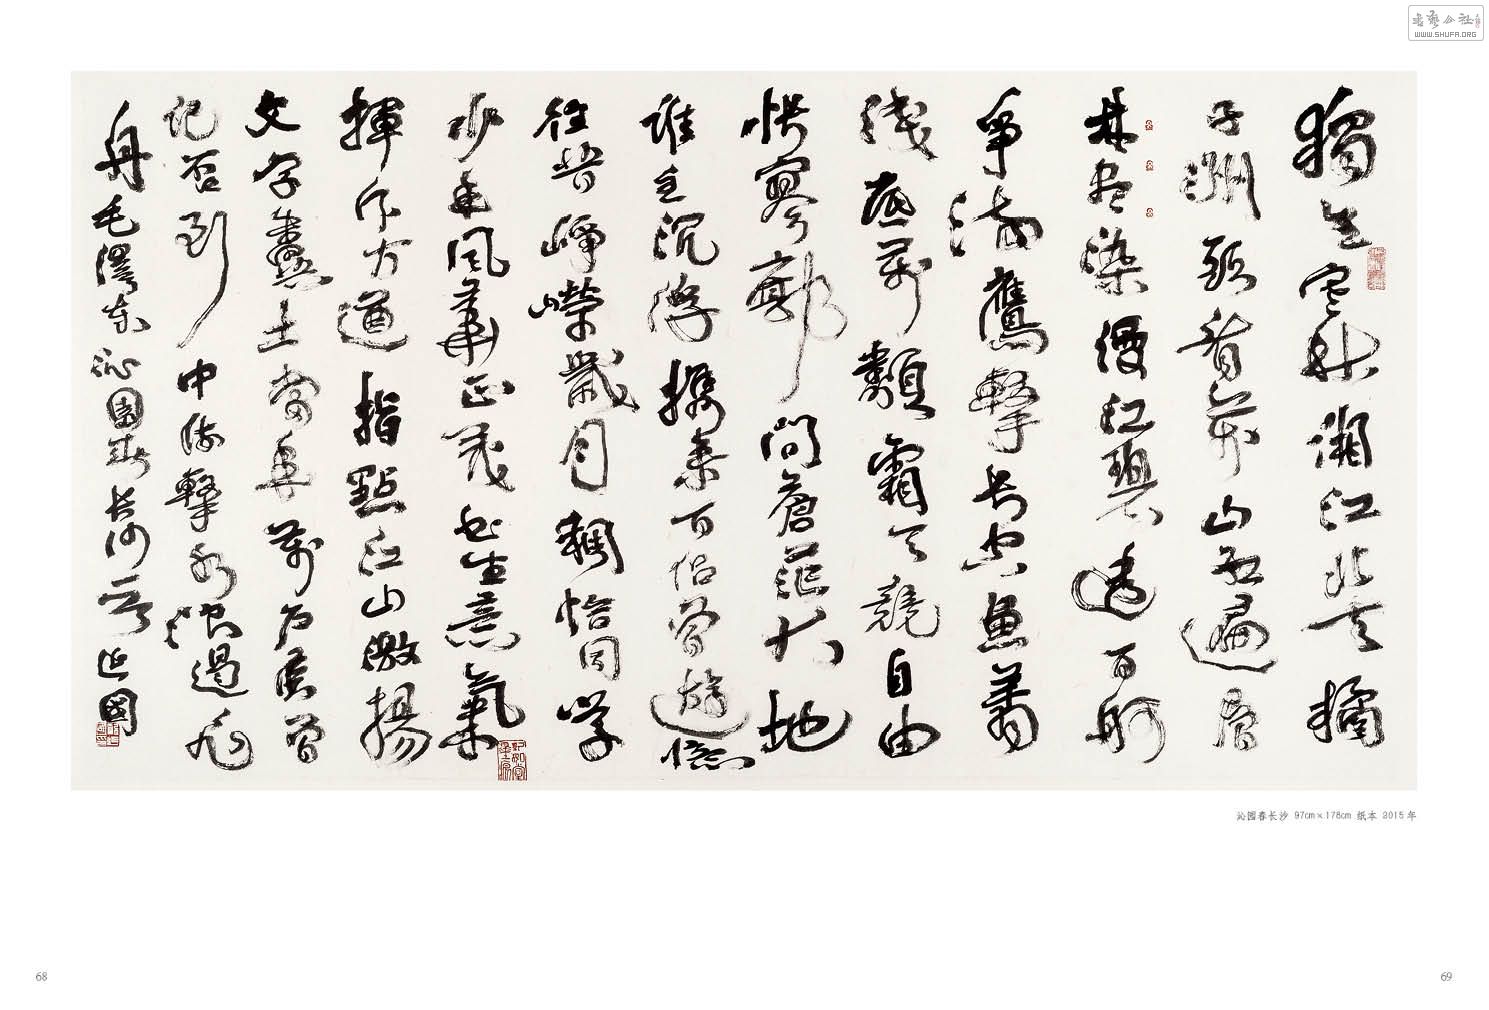 獨立寒秋湘江北去橘
子洲頭看萬山紅遍層
林盡染漫江碧透百舸
爭流鷹擊長空魚翔
淺底萬類霜天競自由
悵寥廓問蒼茫大地
誰主沉浮攜來百侶曾遊憶
往昔崢嶸歲月稠恰同學
少年風華正茂書生意氣
揮斥方遒指點江山激揚
文字糞土當年萬戶侯曾
記否到中流擊水浪遏飛
舟毛澤東沁園春長沙 國
沁园春长沙 97cm×178cm 纸本 2015年
68
69
书艺公社
WWW.SHUFA.ORG